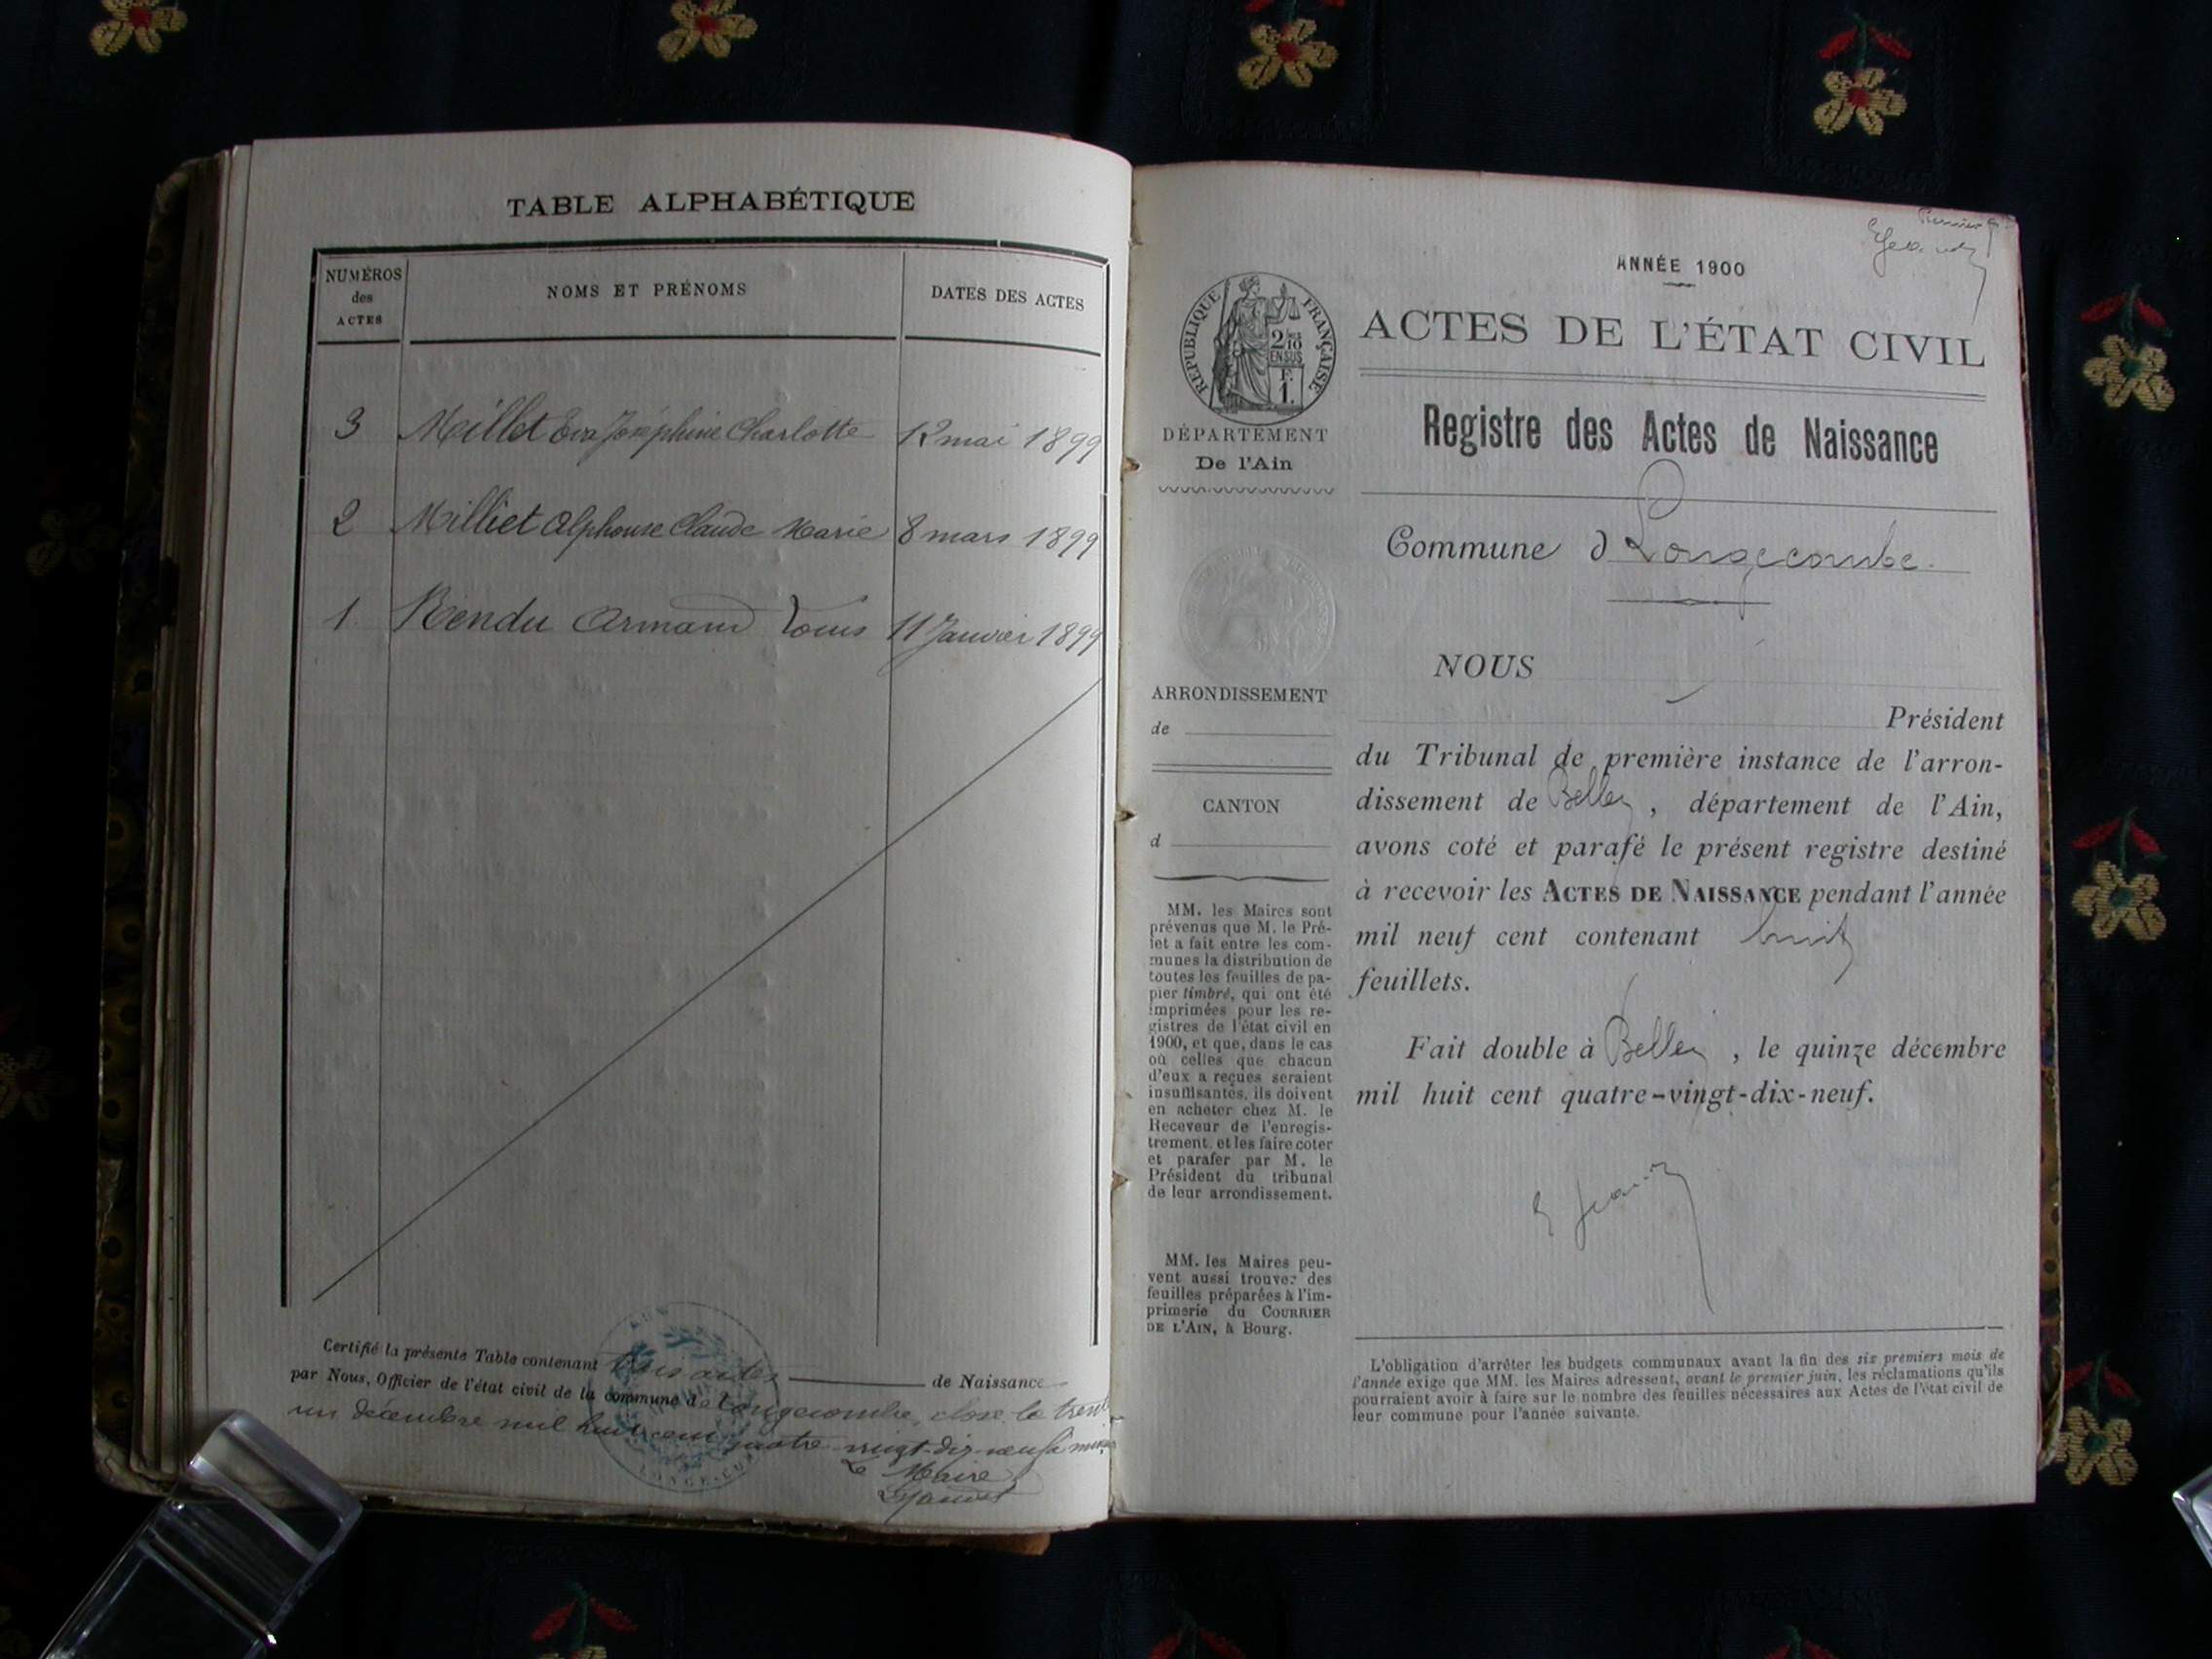 TABLE ALPHABÉTIQUE
NUMÉROS
des
ACTES
NOMS ET PRÉNOMS
DATES DES ACTES
3 Millet Eva Joséphine Charlotte 12 mai 1899
2 Milliet Alphonse Claude Marie 8 mars 1899
1 Rendu Armand Louis 11 Janvier 1899
Certifié la présente Table contenant trois actes de Naissance
par Nous, Officier de l'état civil de la commune d e Longecombe, close le trente
un décembre mil huit cent quatre-vingt-dix-neuf à
Le Maire
Premier
ANNÉE 1900
RÉPUBLIQUE FRANÇAISE
2/10
EN SUS
F.
1.
ACTES DE L'ÉTAT CIVIL
Registre des Actes de Naissance
DÉPARTEMENT
De l'Ain
Commune d Longecombe.
ARRONDISSEMENT
de
CANTON
d
MM. les Maires sont
prévenus que M. le Pré-
fet a fait entre les com-
munes la distribution de
toutes les feuilles de pa-
pier timbré, qui ont été
imprimées pour les re-
gistres de l'état civil en
1900, et que, dans le cas
où celles que chacun
d'eux a reçues seraient
insuffisantes, ils doivent
en acheter chez M. le
Receveur de l'enregis-
trement, et les faire coter
et parafer par M. le
Président du tribunal
de leur arrondissement.
MM. les Maires peu-
vent aussi trouver des
feuilles préparées à l'im-
primerie du COURRIER
DE L'AIN, à Bourg.
NOUS
Président
du Tribunal de première instance de l'arron-
dissement de Belley, département de l'Ain,
avons coté et parafé le présent registre destiné
à recevoir les ACTES DE NAISSANCE pendant l'année
mil neuf cent contenant huit
feuillets.
Fait double à Belley, le quinze décembre
mil huit cent quatre-vingt-dix-neuf.
L'obligation d'arrêter les budgets communaux avant la fin des six premiers mois de
l'année exige que MM. les Maires adressent, avant le premier juin, les réclamations qu'ils
pourraient avoir à faire sur le nombre des feuilles nécessaires aux Actes de l'état civil de
leur commune pour l'année suivante.